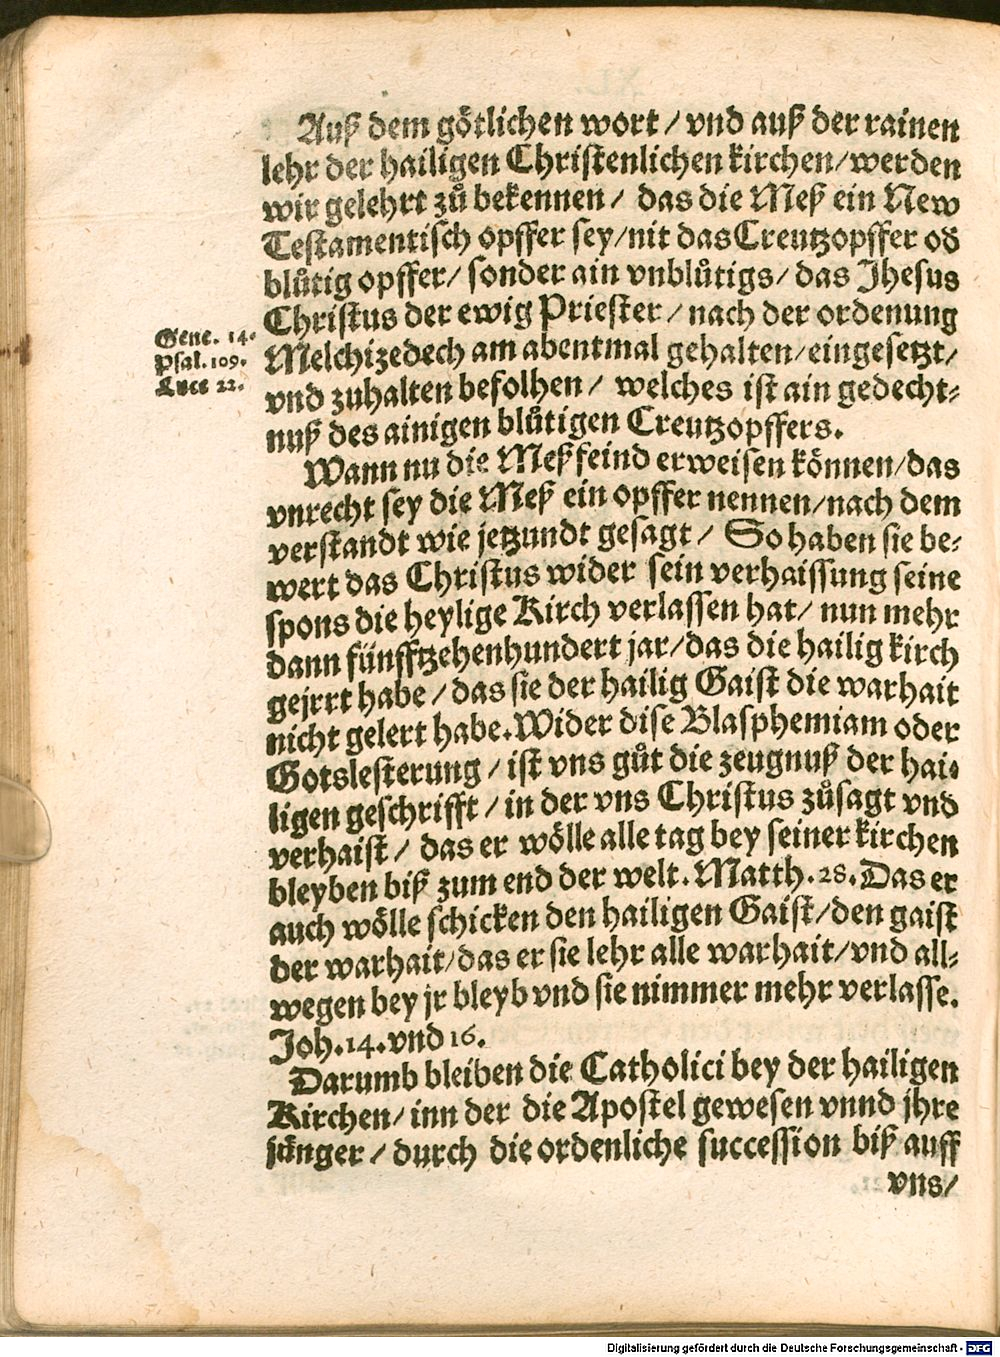 Auß dem götlichen wort / vnd auß der rainen
lehr der hailigen Christenlichen kirchen/ werden
wir gelehrt zů bekennen / das die Meß ein New
Testamentisch opffer sey/ nit das Creutzopffer od
blůtig opffer/ sonder ain vnblůtigs/ das Jhesus
Christus der ewig Priester / nach der ordenung
Gene. 14.
Psal. 109.
Luce 22.
Melchizedech am abentmal gehalten/ eingesetzt/
vnd zuhalten befolhen / welches ist ain gedecht-
nuß des ainigen blůtigen Creutzopffers.
Wann nu die Meßfeind erweisen können/ das
vnrecht sey die Meß ein opffer nennen/ nach dem
verstandt wie jetzundt gesagt / So haben sie be-
wert das Christus wider sein verhaissung seine
spons die heylige Kirch verlassen hat/ nun mehr
dann fünfftzehenhundert jar/ das die hailig kirch
gejrrt habe / das sie der hailig Gaist die warhait
nicht gelert habe. Wider dise Blasphemiam oder
Gotslesterung / ist vns gůt die zeugnuß der hai-
ligen geschrifft / in der vns Christus zůsagt vnd
verhaist / das er wölle alle tag bey seiner kirchen
bleyben biß zum end der welt. Matth. 28. Das er
auch wölle schicken den hailigen Gaist/ den gaist
der warhait/ das er sie lehr alle warhait/ vnd all-
wegen bey jr bleyb vnd sie nimmer mehr verlasse.
Joh. 14. vnd 16.
Darumb bleiben die Catholici bey der hailigen
Kirchen/ inn der die Apostel gewesen vnnd jhre
jünger / durch die ordenliche succession biß auff
vns/
Digitalisierung gefördert durch die Deutsche Forschungsgemeinschaft - DFG